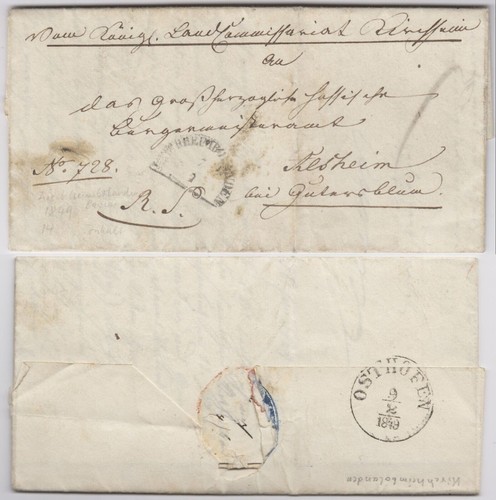 Vom Königl. LandCommissariat Kirchheim
An
das Großherzogliche Hessische
Bürgermeisteramt
No. 728.
Alsheim
R. S.
bei Guntersblum.
1849
14
OSTHOFEN
9
2
Kirchheimbolanden